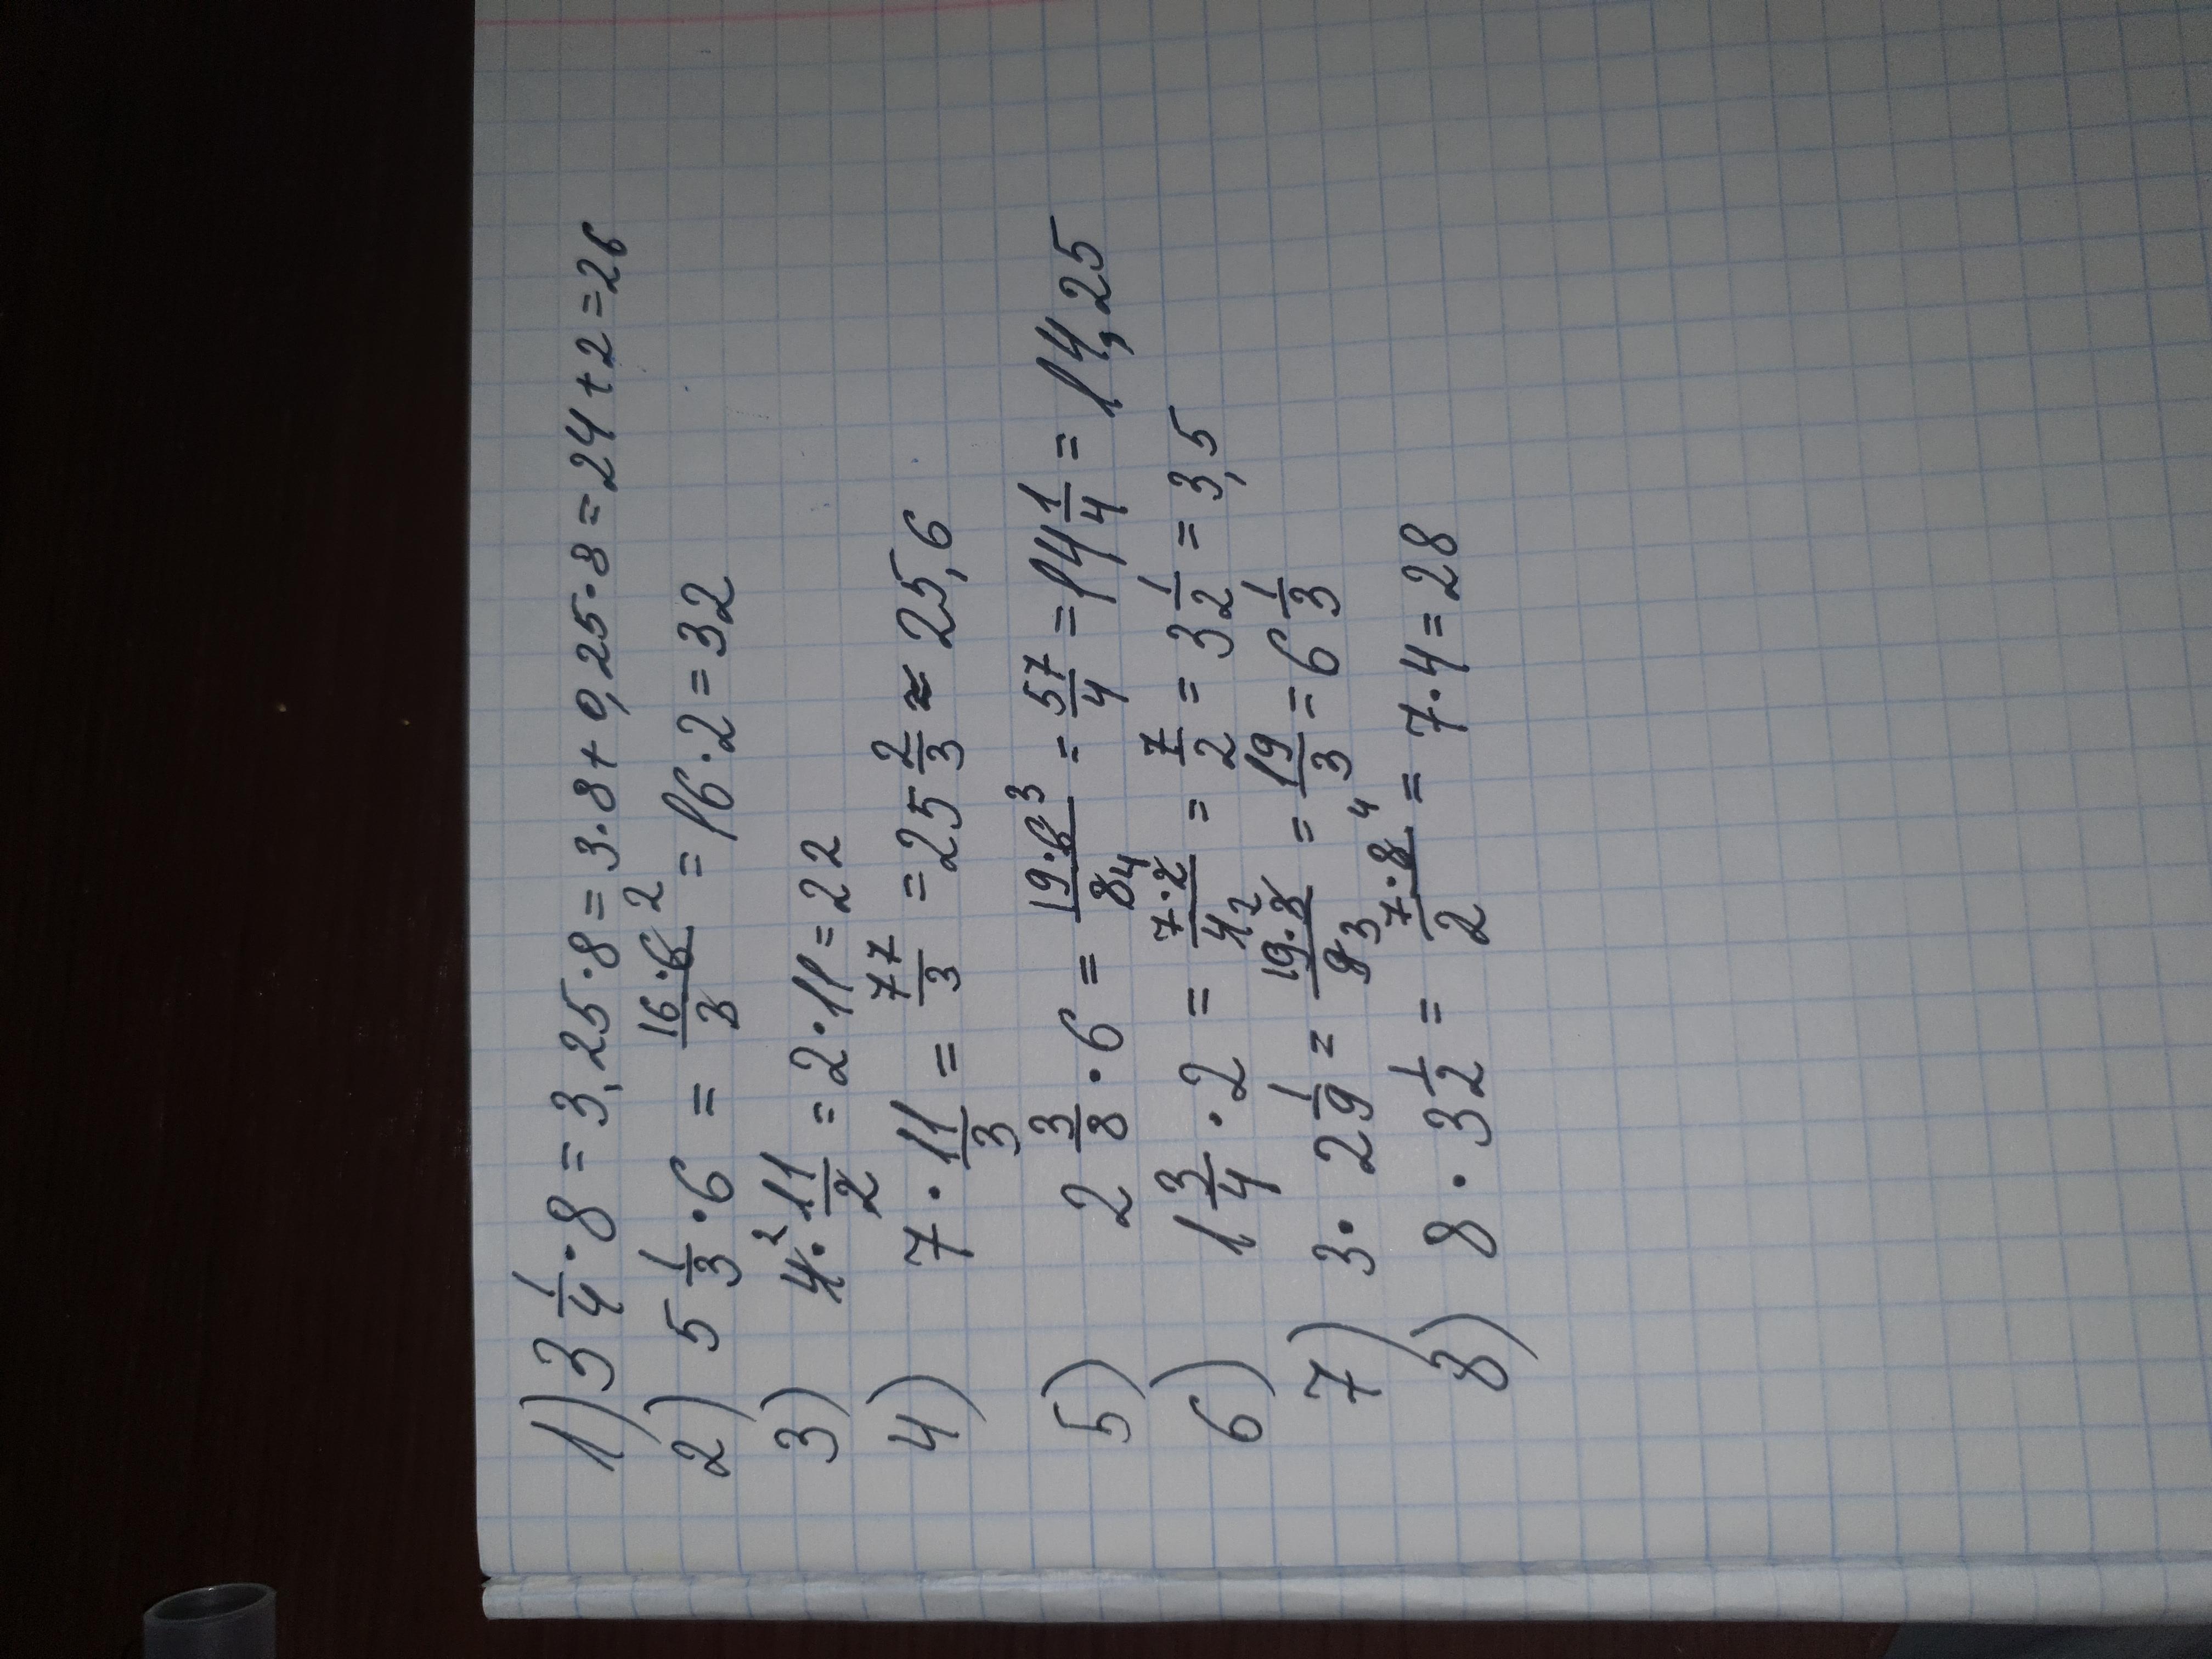 1) 3 1/4 · 8 = 3,25 · 8 = 3 · 8 + 0,25 · 8 = 24 + 2 = 26
2) 5 1/3 · 6 = 16 · 6 2 / 3 = 16 · 2 = 32
3) 4 2 · 11/2 = 2 · 11 = 22
4) 7 · 11/3 = 77/3 = 25 2/3 ≈ 25,6
5) 2 3/8 · 6 = 19 · 6 3 / 8 4 = 57/4 = 14 1/4 = 14,25
6) 1 3/4 · 2 = 7 · 2 / 4 2 = 7/2 = 3 1/2 = 3,5
7) 3 · 2 1/9 = 19 · 3 / 9 3 = 19/3 = 6 1/3
8) 8 · 3 1/2 = 7 · 8 4 / 2 = 7 · 4 = 28